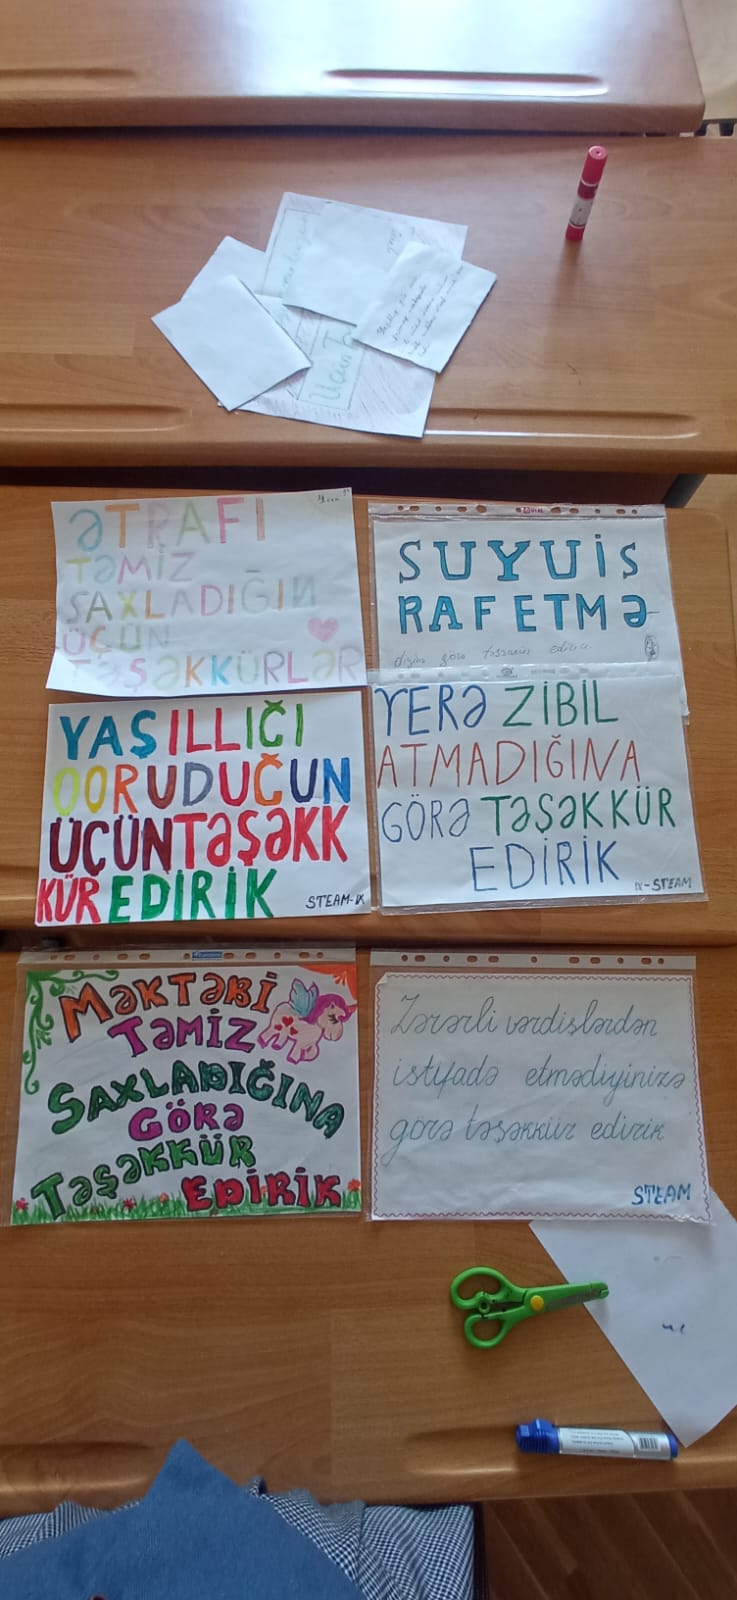 üçün
ƏTRAFI
TƏMİZ
SAXLADIĞIN
ÜÇÜN
TƏŞƏKKÜRLƏR
SUYUİS
RAFETMƏ
diyinə görə təşəkkür edirik
YAŞILLIĞI
QORUDUĞUN
ÜÇÜNTƏŞƏKK
KÜR EDİRİK
STEAM-IX
YERƏ ZİBİL
ATMADIĞINA
GÖRƏ TƏŞƏKKÜR
EDİRİK
IX-STEAM
MƏKTƏBİ
TƏMİZ
SAXLADIĞINA
GÖRƏ
TƏŞƏKKÜR
EDİRİK
Zərərli vərdişlərdən
istifadə etmədiyinizə
görə təşəkkür edirik
STEAM